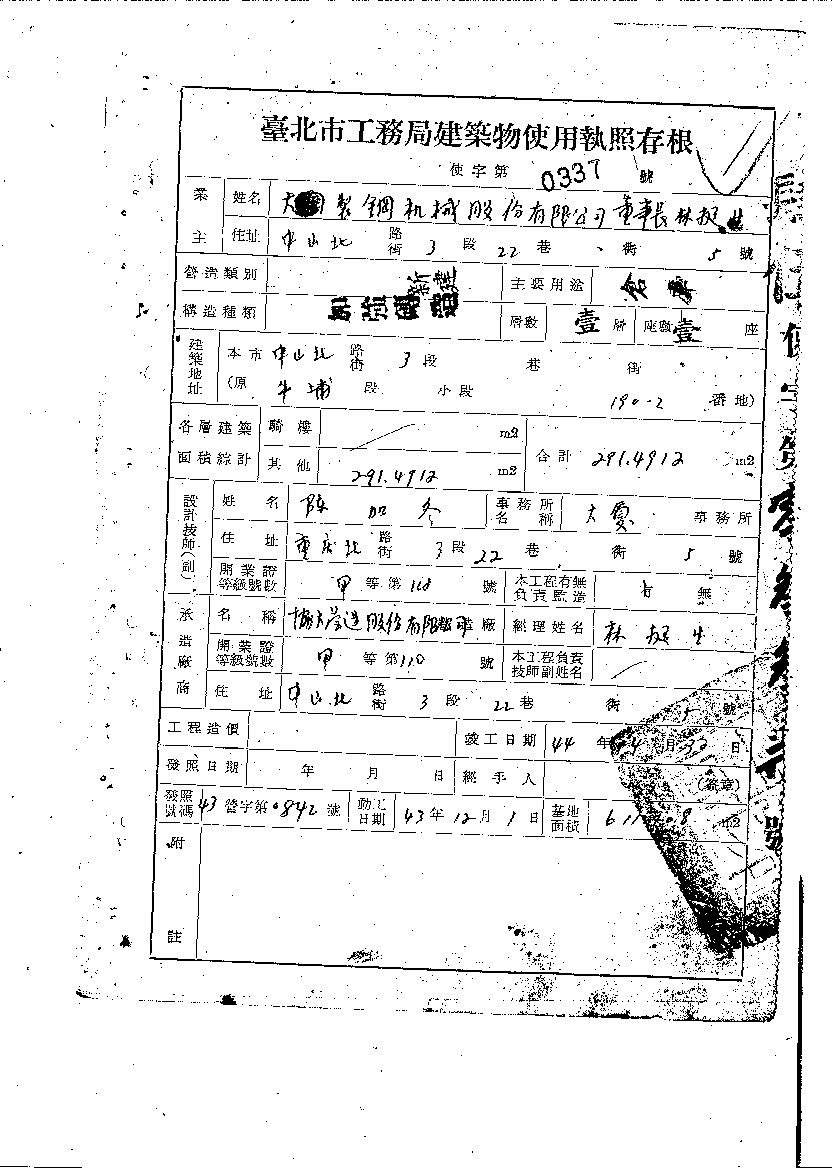 臺北市工務局建築物使用執照存根
使字第 0337 號
業主 姓名 大同製鋼机械股份有限公司董事長林挺生
住址 中山北 路街 3 段 22 巷 街 5 號
營造類別 新建 主要用途 倉庫
構造種類 層數 壹 層 座數 壹 座
建築地址 本市 中山北 路街 3 段 巷 街
(原 牛埔 段 小段 190-2 番地)
各層建築面積綜計 騎樓 m2 合計 291.4912 m2
其他 291.4912 m2
設計技師(副) 姓名 陳 事務所名稱 大廈 事務所
住址 重庆北 路街 3 段 22 巷 街 5 號
開業證等級號數 甲 等第 118 號 本工程有無負責監造 有 無
承造廠商 名稱 協大營造股份有限 廠 經理姓名 林挺生
開業證等級號數 甲 等第 110 號 本工程負責技師副姓名
住址 中山北 路街 3 段 22 巷 街 5 號
工程造價 竣工日期 44 年 4 月 日
發照日期 年 月 日 經手人 (蓋章)
發照號碼 43 營字第 0842 號 動工日期 43 年 12 月 1 日 基地面積 m2
附註